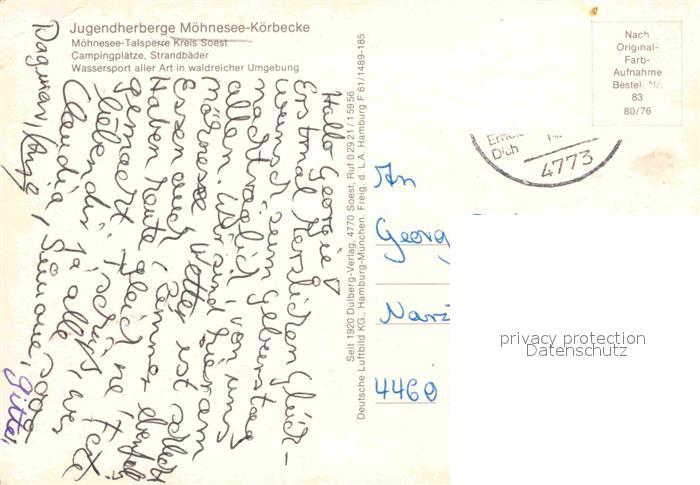 Jugendherberge Möhnesee-Körbecke
Möhnesee-Talsperre Kreis Soest
Campingplätze, Strandbäder
Wassersport aller Art in waldreicher Umgebung
Hallo George!
Erstmal Herzlichen Glück-
wunsch zum Geburtstag
nachträglich, von uns
allen. Wir sind hier am
Möhnesee Wetter ist schlecht
Essen auch, Zimmer ebenfalls
Haben heute gleich ne Fete
gemacht
Tschüß,
Claudia, Simone,
Dagmar,
Gitte,
Seit 1920 Dülberg-Verlag, 4770 Soest, Ruf 0 29 21 / 1 59 56
Deutsche Luftbild KG., Hamburg-München. Freig. d. L.A. Hamburg F 61/1489-185
Nach
Original-
Farb-
Aufnahme
Bestell-Nr.
83
80/76
Dich
4773
An
Georg
Narz
4460
privacy protection
Datenschutz